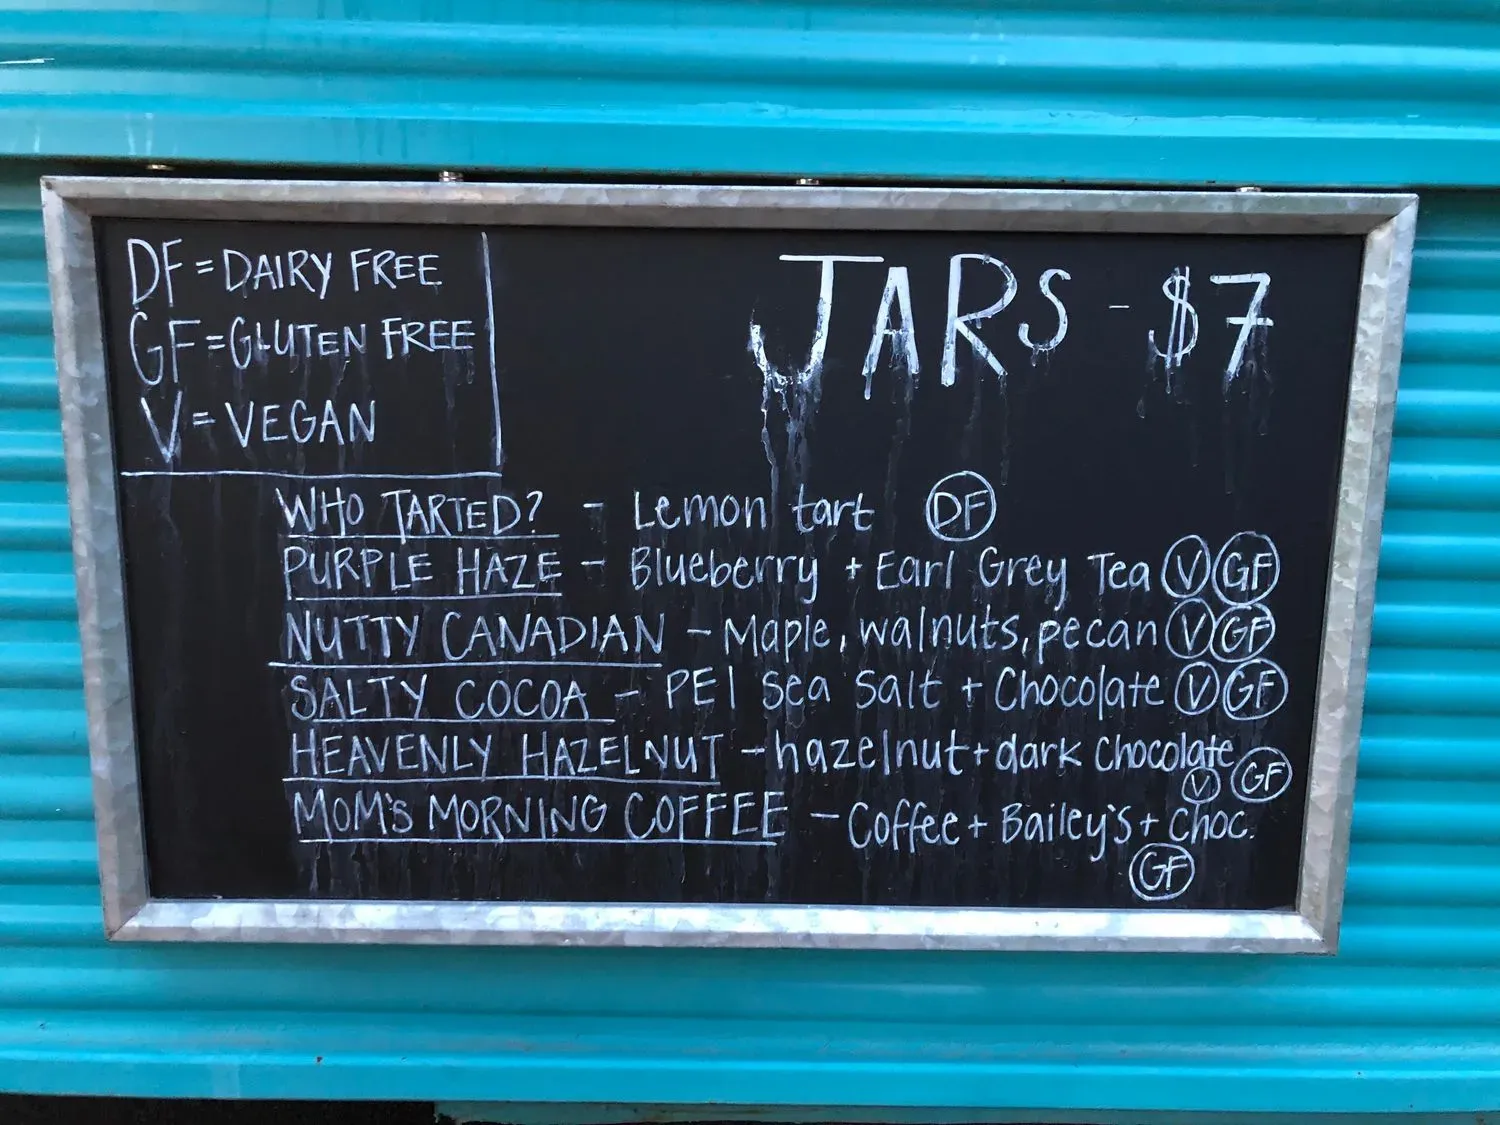 DF = DAIRY FREE
GF = GLUTEN FREE
V = VEGAN
JARS - $7
WHO TARTED? - Lemon tart DF
PURPLE HAZE - Blueberry + Earl Grey Tea V GF
NUTTY CANADIAN - Maple, walnuts, pecan V GF
SALTY COCOA - PEI sea salt + Chocolate V GF
HEAVENLY HAZELNUT - hazelnut + dark chocolate V GF
MOM'S MORNING COFFEE - Coffee + Bailey's + choc.
GF